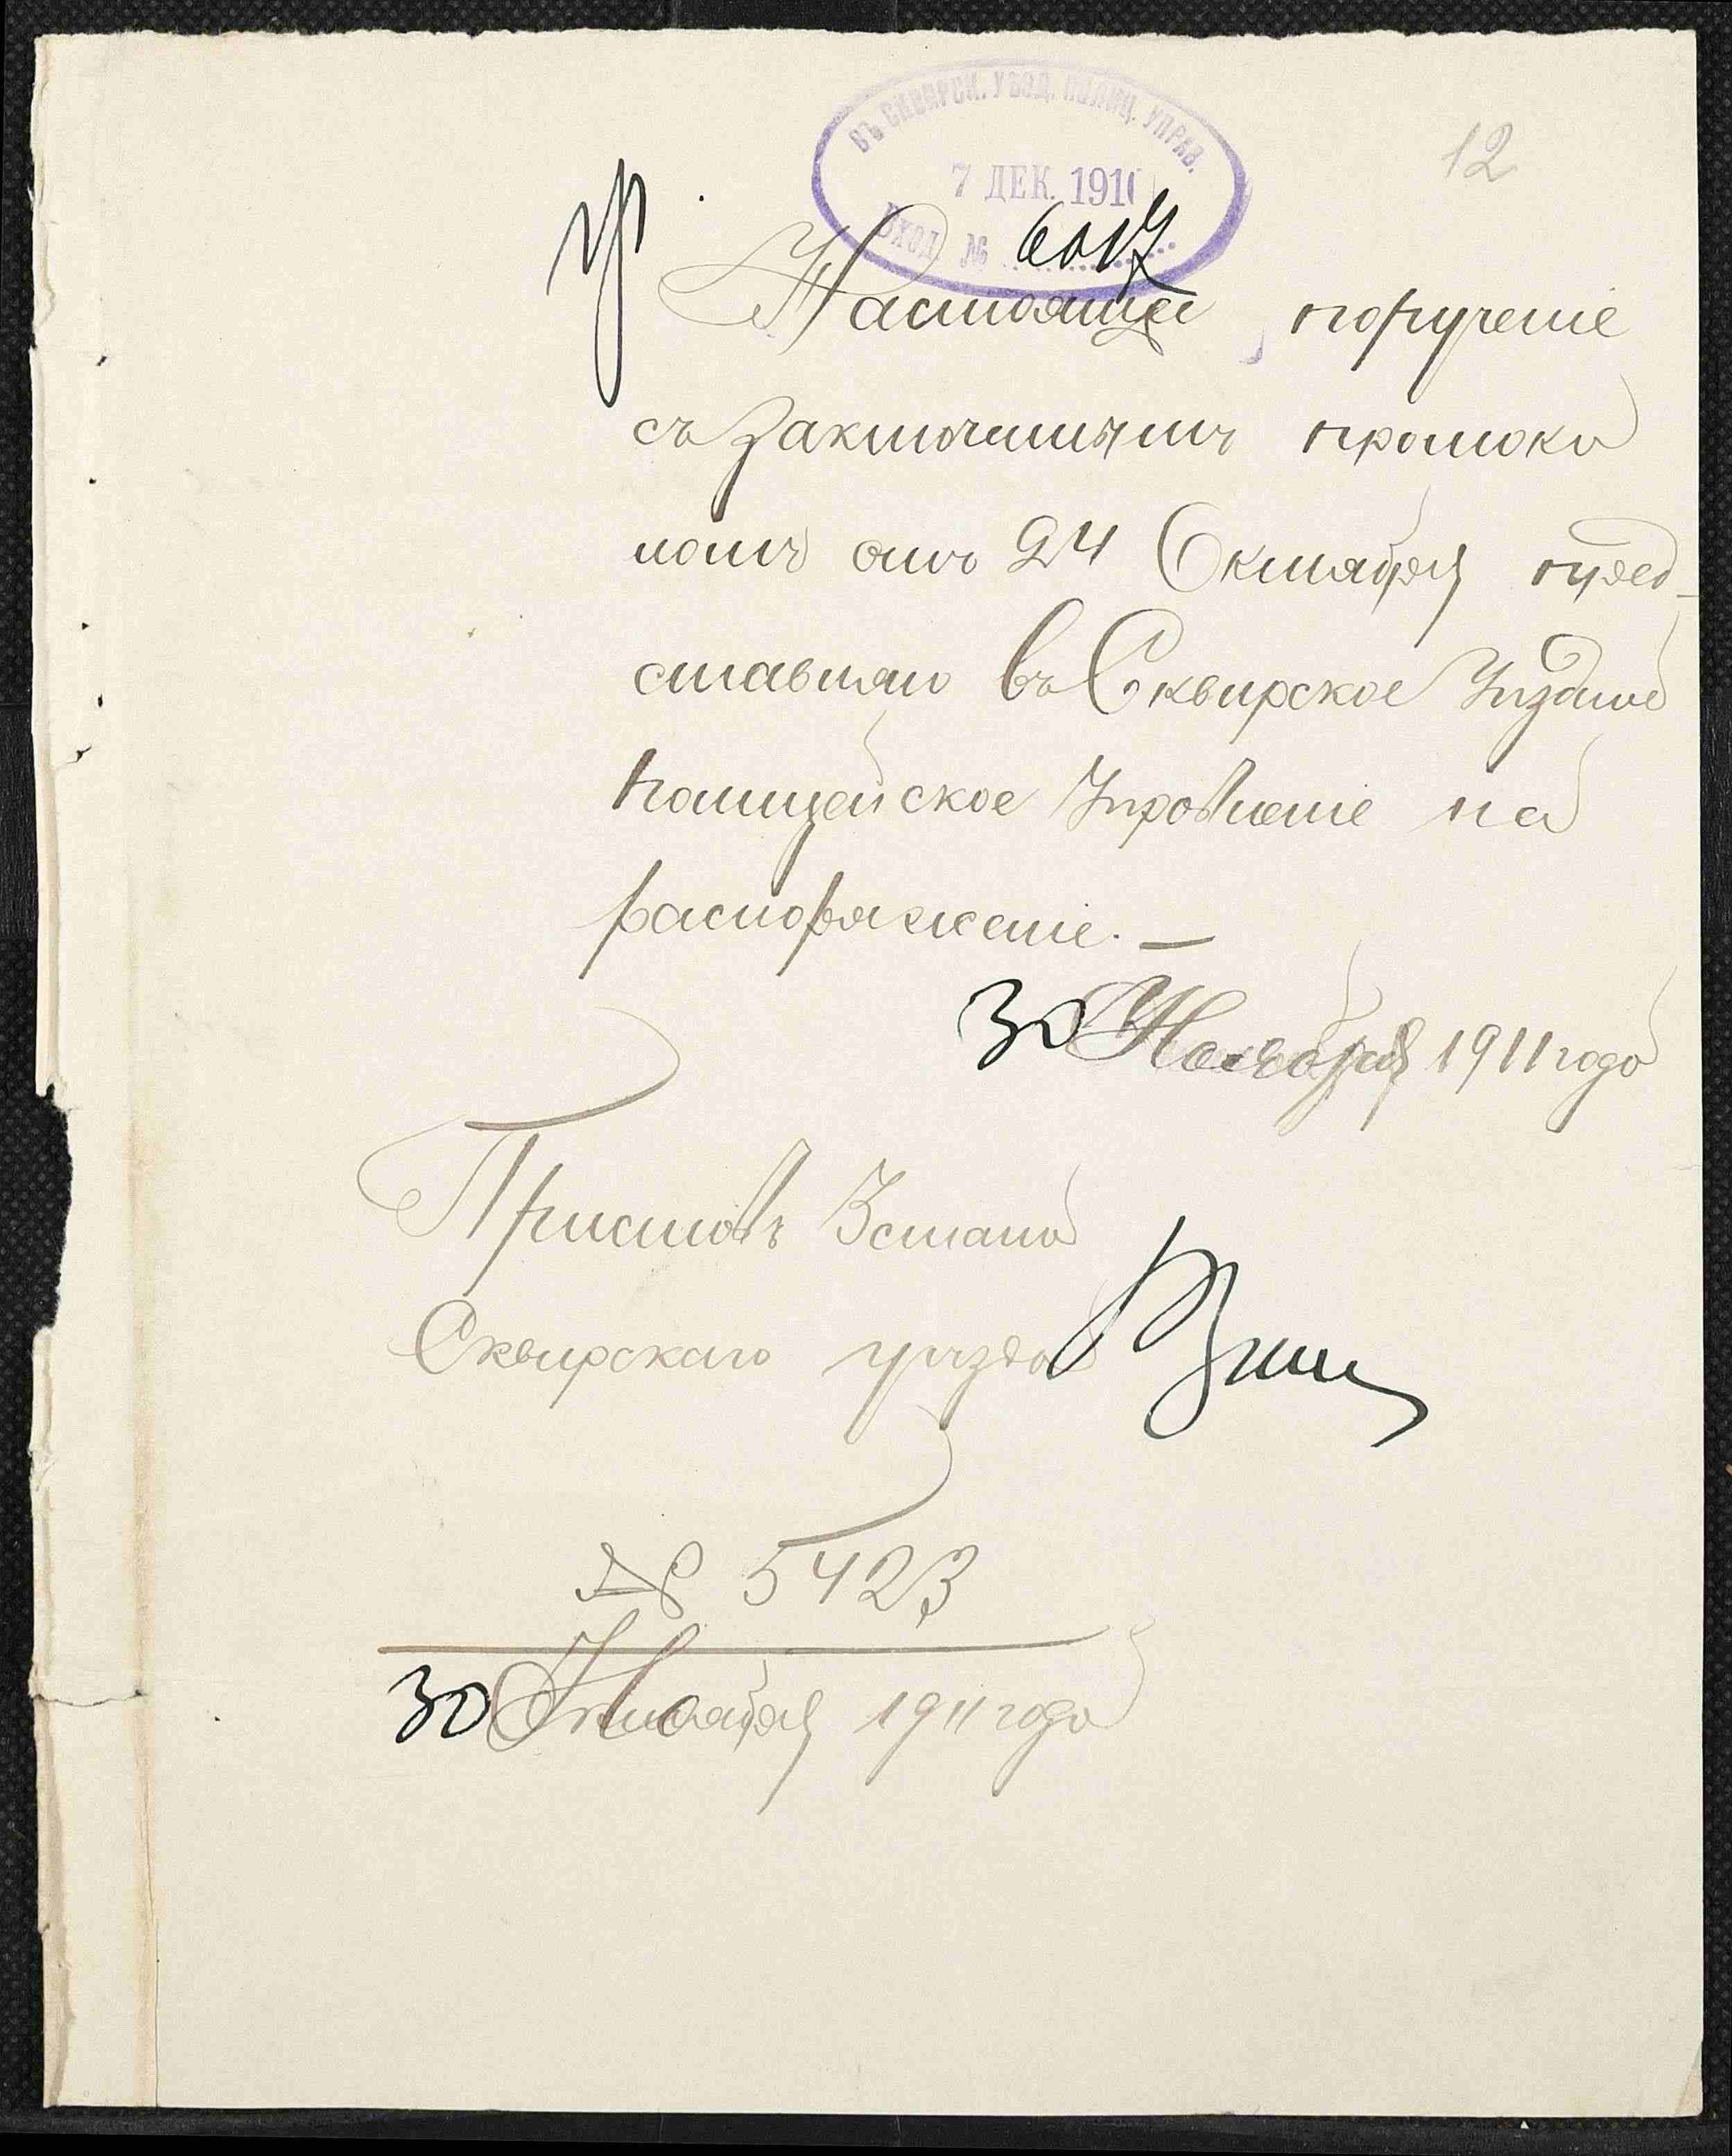 12
ВЪ СКВИРСК. УѢЗД. ПОЛИЦ. УПРАВ.
7 ДЕК. 191
ВХОД. № 6017
Настоящее порученіе
съ заключеннымъ протоко
ломъ отъ 24 Октября пред-
ставляю въ Сквирское Уѣздное
Полицейское Управленіе на
распоряженіе. —
30 Ноября 1911 года
Приставъ 3 стана
Сквирскаго уѣзда
№ 5423
30 1911 года